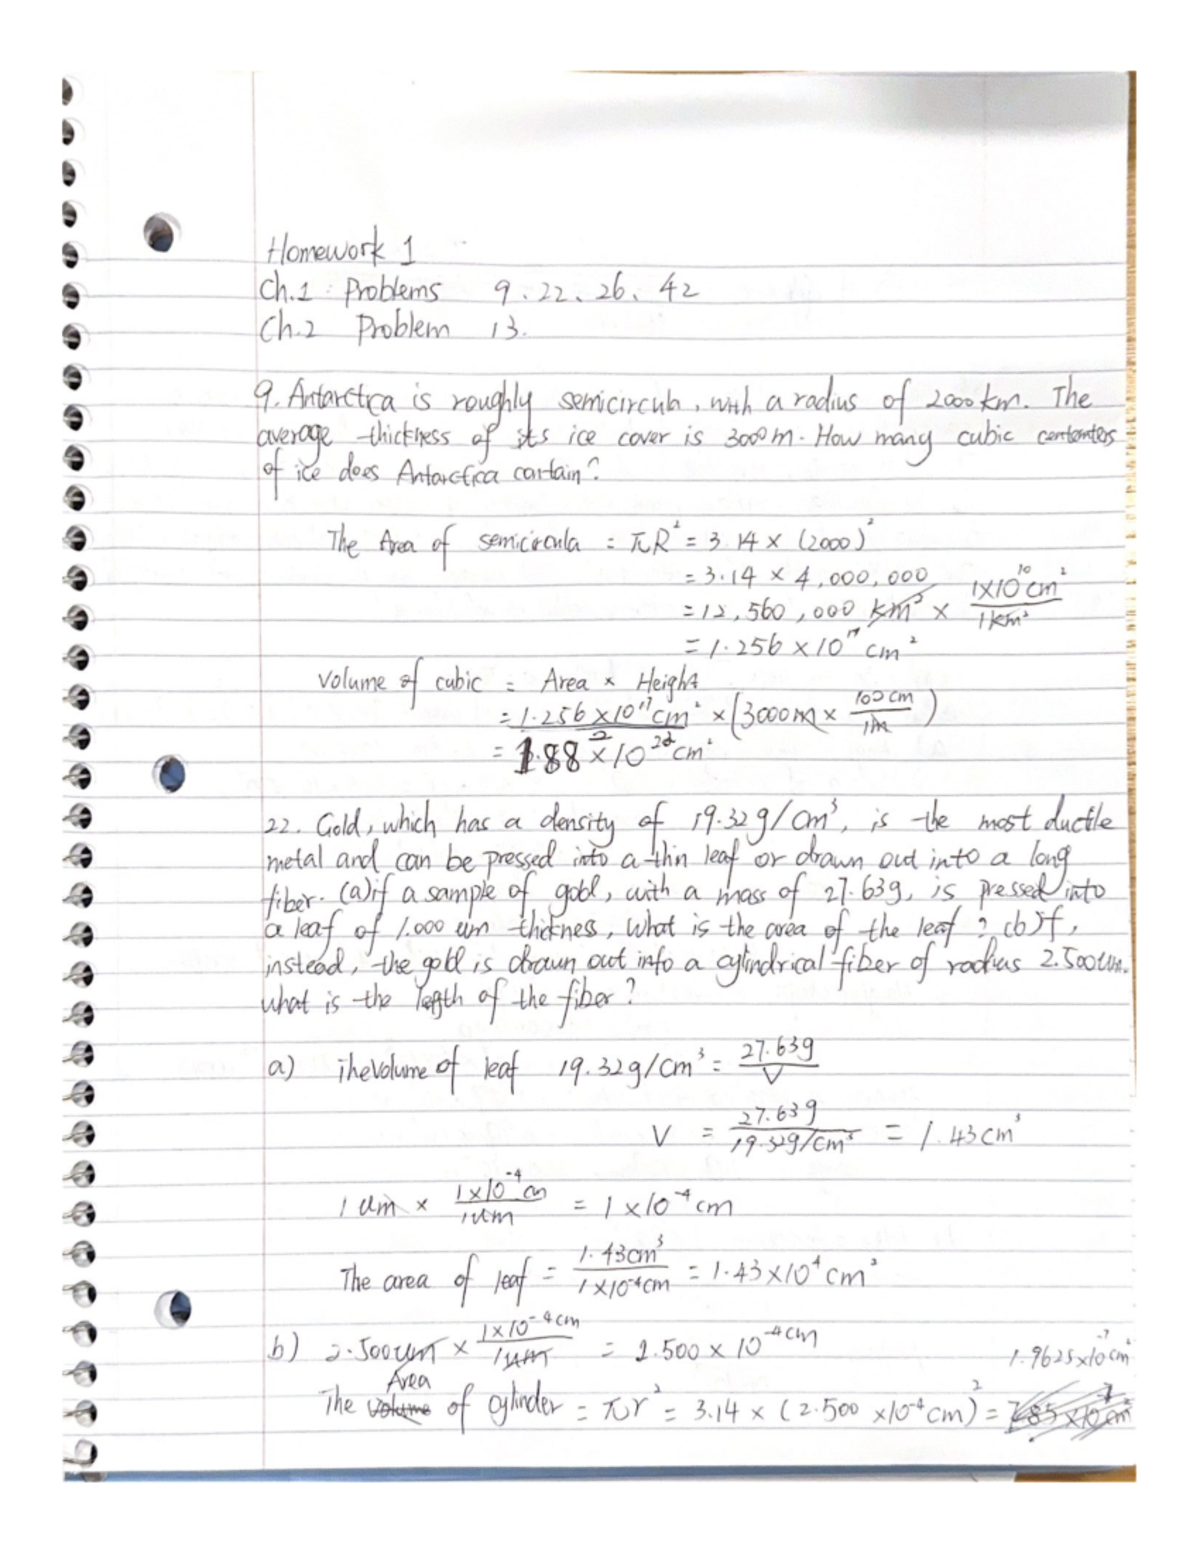 Homework 1
Ch.1 Problems 9. 22. 26. 42
Ch.2 Problem 13.
9. Antarctica is roughly semicircula, with a radius of 2000 km. The
average thickness of its ice cover is 3000 m. How many cubic centemters
of ice does Antarctica contain?
The Area of semicircula = πR² = 3.14 × (2000)²
= 3.14 × 4,000,000
= 12,560,000 km² × 1×10¹⁰ cm² / 1 km²
= 1.256 × 10¹⁷ cm²
Volume of cubic = Area × Height
= 1.256 × 10¹⁷ cm² × (3000 m × 100 cm / 1m)
= 1.88 × 10²² cm²
22. Gold, which has a density of 19.32 g/cm³, is the most ductile
metal and can be pressed into a thin leaf or drawn out into a long
fiber. (a) if a sample of gold, with a mass of 27.63g, is pressed into
a leaf of 1.000 um thickness, what is the area of the leaf? (b) If,
instead, the gold is drawn out into a cylindrical fiber of radius 2.500 um.
what is the length of the fiber?
a) The Volume of leaf 19.32 g/cm³ = 27.63g / V
V = 27.63g / 19.32g/cm³ = 1.43 cm³
1 um × 1×10⁻⁴ cm / 1um = 1 × 10⁻⁴ cm
The area of leaf = 1.43cm³ / 1×10⁻⁴cm = 1.43×10⁴ cm²
b) 2.500um × 1×10⁻⁴cm / 1um = 2.500 × 10⁻⁴ cm
1.9625×10⁻⁷ cm²
Area
The volume of cylinder = πr² = 3.14 × (2.500 ×10⁻⁴ cm)² = 7.85 ×10 cm²